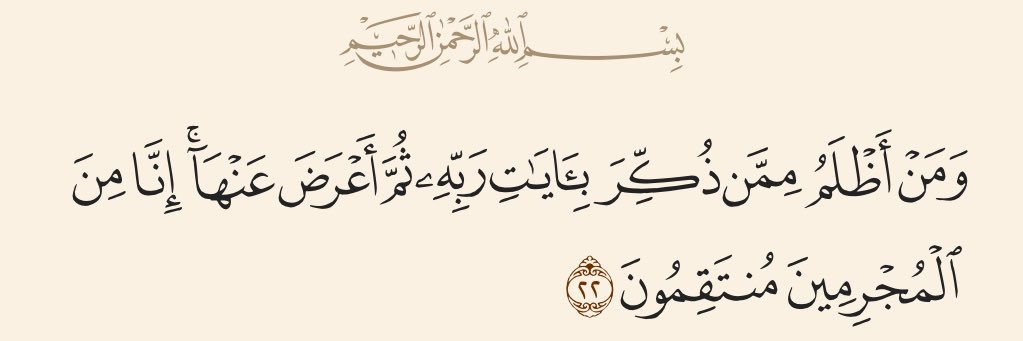 بِسْمِ ٱللَّهِ ٱلرَّحْمَٰنِ ٱلرَّحِيمِ
وَمَنْ أَظْلَمُ مِمَّن ذُكِّرَ بِـَٔايَـٰتِ رَبِّهِۦ ثُمَّ أَعْرَضَ عَنْهَآ ۚ إِنَّا مِنَ
ٱلْمُجْرِمِينَ مُنتَقِمُونَ ٢٢